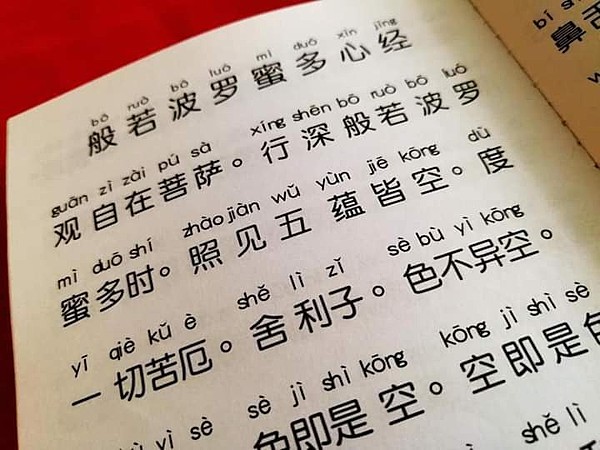 bō ruò bō luó mì duō xīn jīng
般若波罗蜜多心经
guān zì zài pú sà xíng shēn bō ruò bō luó
观自在菩萨。行深般若波罗
mì duō shí zhào jiàn wǔ yùn jiē kōng dù
蜜多时。照见五蕴皆空。度
yī qiè kǔ è shě lì zǐ sè bù yì kōng
一切苦厄。舍利子。色不异空。
yì sè sè jì shì kōng kōng jì shì sè
色即是空。空即是色
shě lì
bí
鼻舌